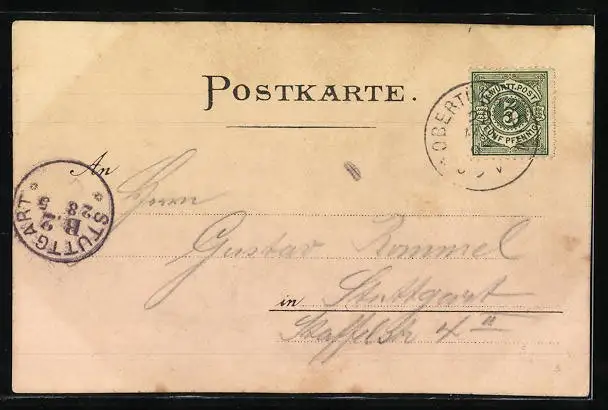 POSTKARTE.
K. WÜRTT. POST
5
FÜNF PFENNIG
OBERTÜ
An
Herrn
Gustav Rommel
in Stuttgart
Staffelstr 4 II
STUTTGART
B. 2
28
5